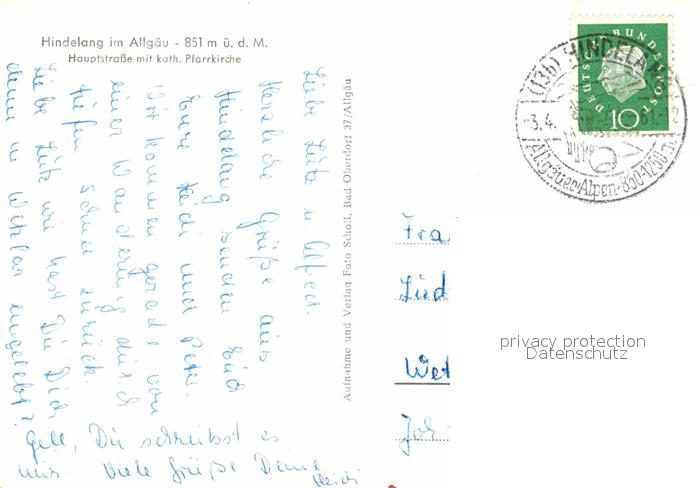 Hindelang im Allgäu - 851 m ü. d. M.
Hauptstraße mit kath. Pfarrkirche
Liebe Lutz u. Alfred.
Herzliche Grüße aus
Hindelang senden Euch
Eure Heidi und Peter.
Wir kommen gerade von
einer Wanderung durch
tiefen Schnee zurück.
Liebe Lutz wie hast Du Dich
denn in Wetzlar eingelebt?
Gell, Du schreibst es
mir. Viele Grüße Deine
Heidi
Aufnahme und Verlag Foto Scholl, Bad Oberdorf 37/Allgäu
DEUTSCHE BUNDESPOST
10
(13b) HINDELANG
-3.4.61-12
Allgäuer Alpen-850-1250 m
Fra
Lüd
Wet
Joh
privacy protection
Datenschutz